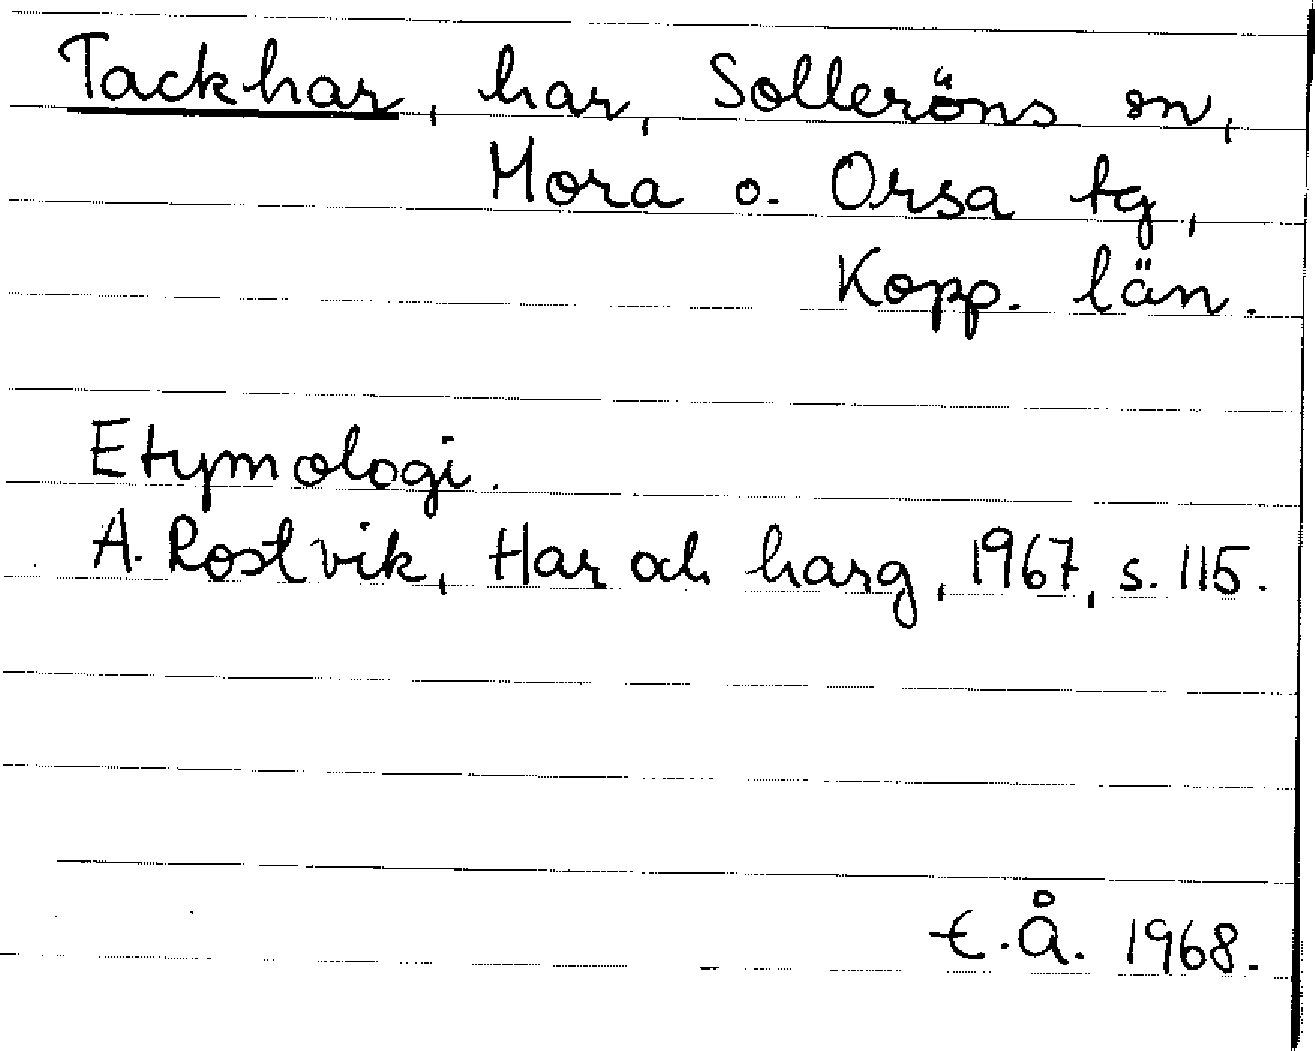 Tackhar, har, Solleröns sn,
Mora o. Orsa tg,
Kopp. län.
Etymologi.
A. Rostvik, Har och harg, 1967, s. 115.
E.Å. 1968.